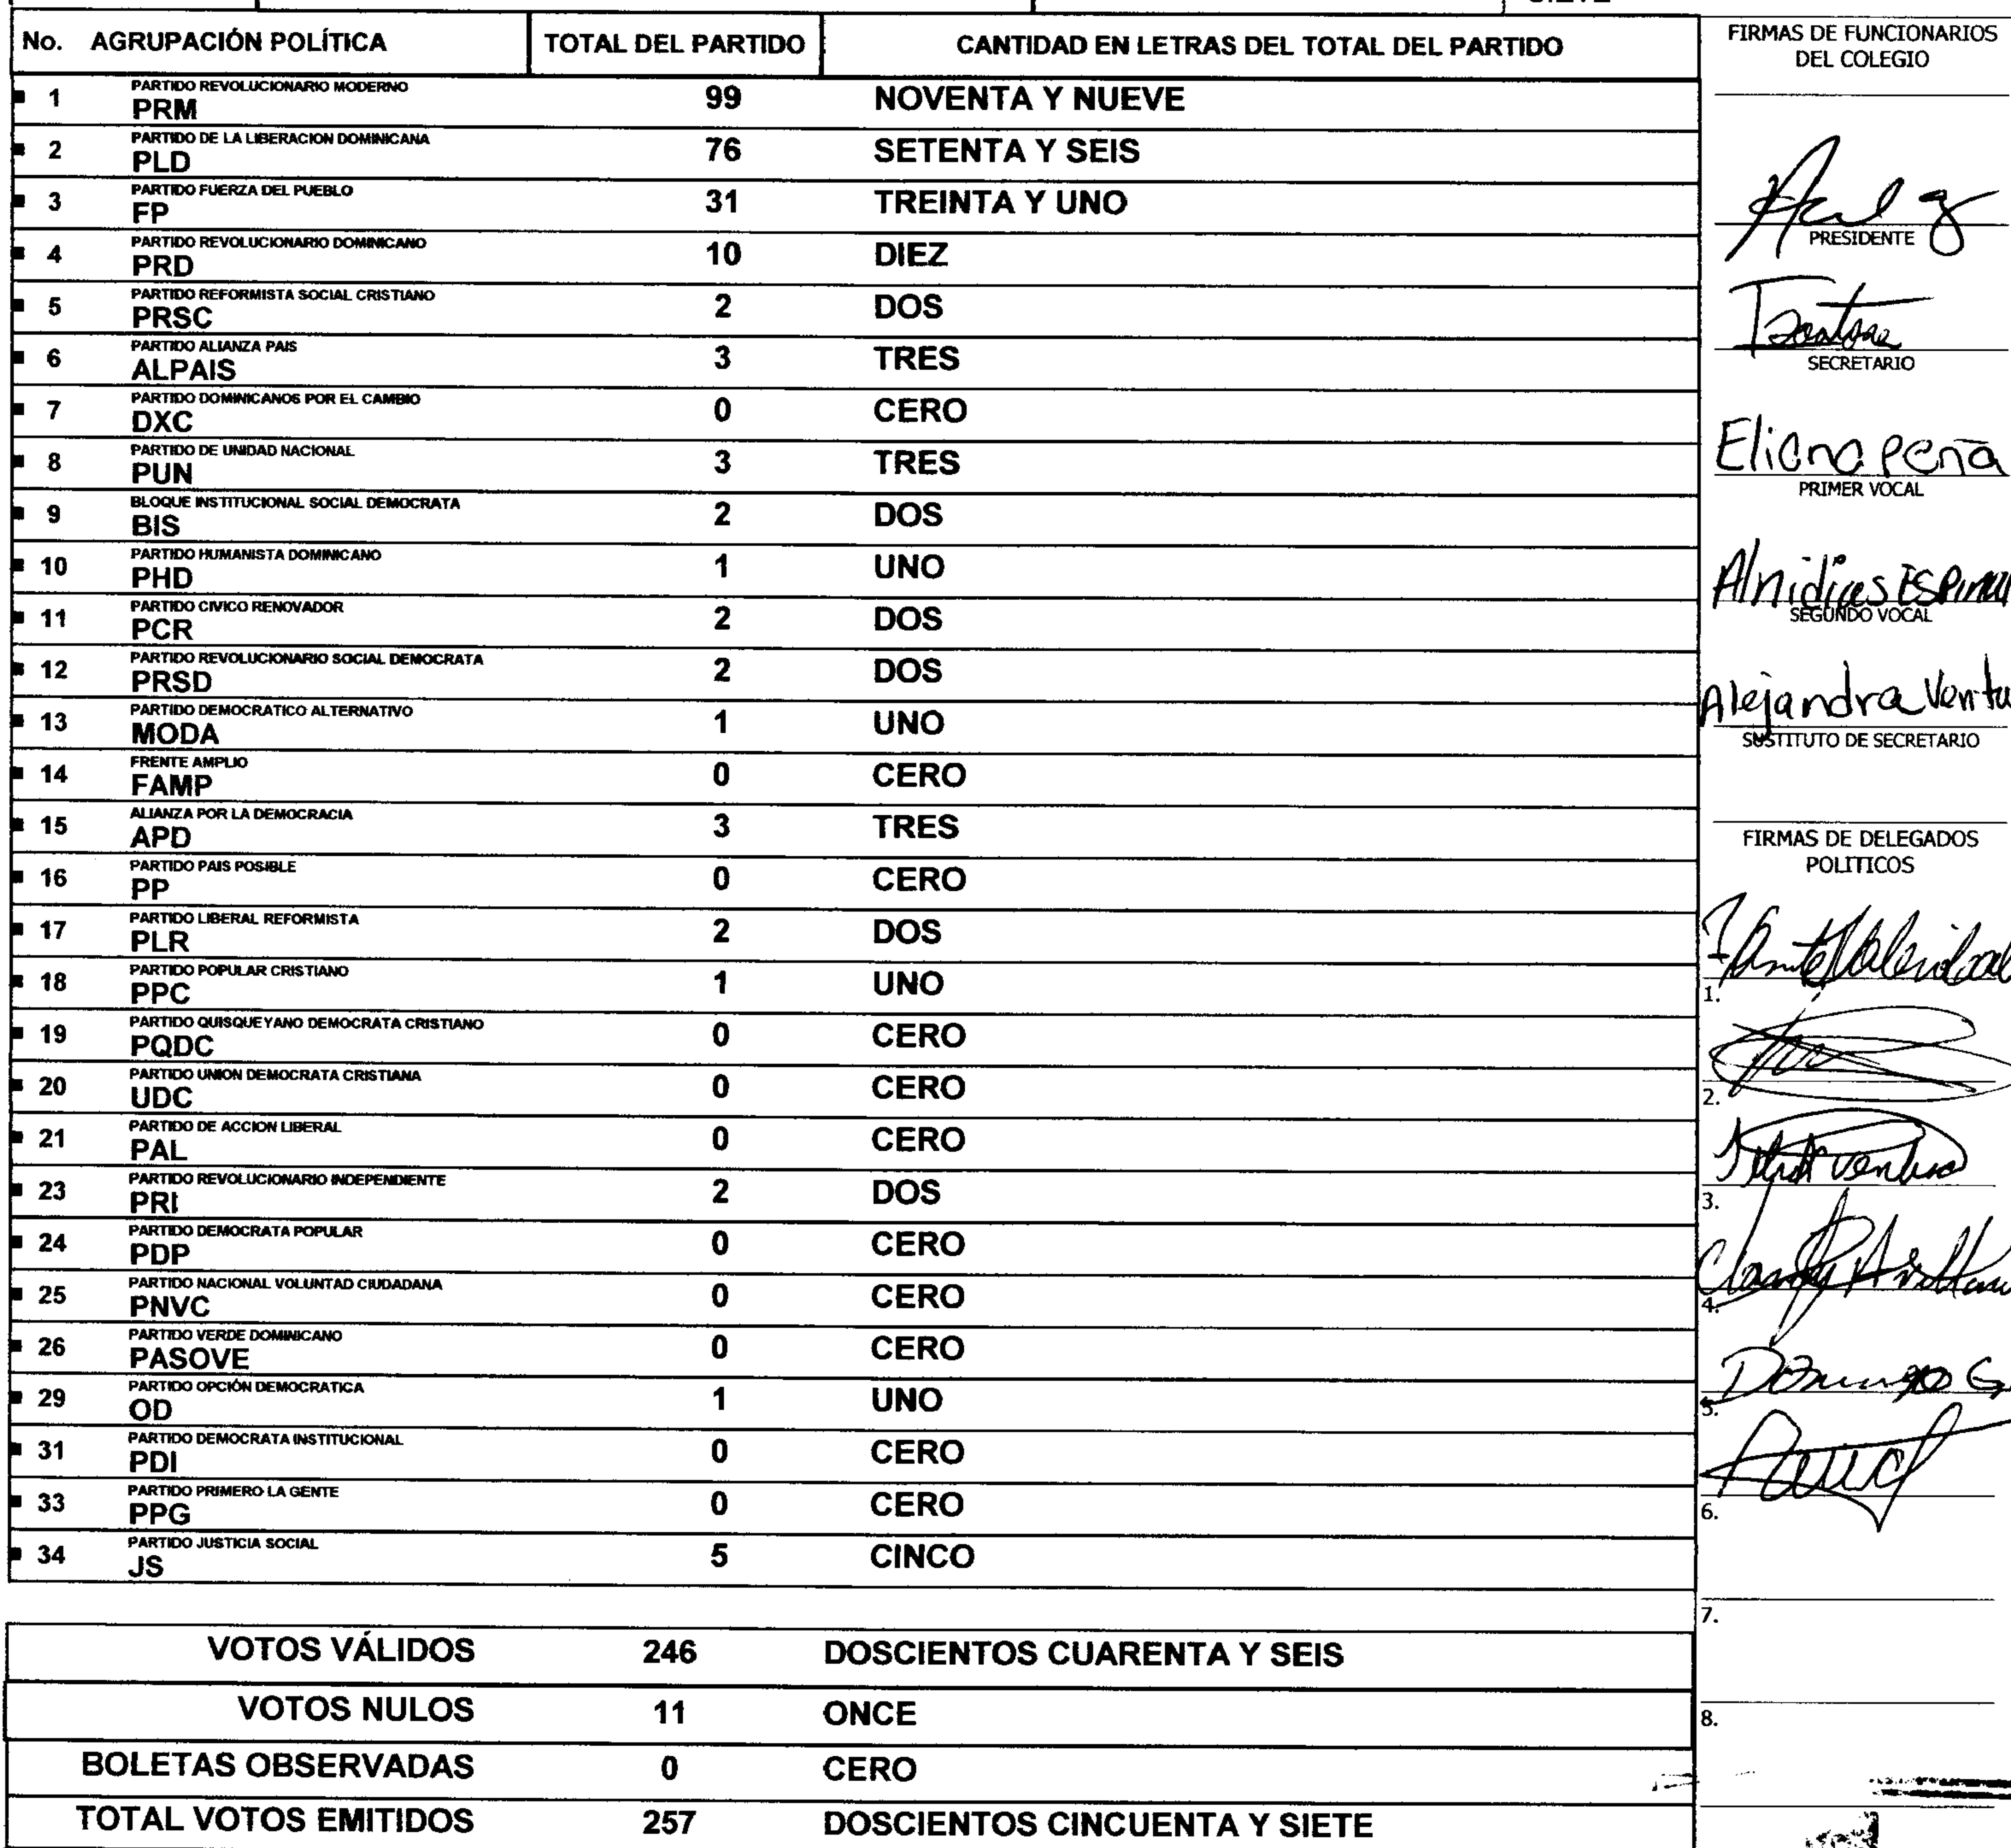 No. AGRUPACIÓN POLÍTICA TOTAL DEL PARTIDO CANTIDAD EN LETRAS DEL TOTAL DEL PARTIDO
PARTIDO REVOLUCIONARIO MODERNO
1 PRM 99 NOVENTA Y NUEVE
PARTIDO DE LA LIBERACION DOMINICANA
2 PLD 76 SETENTA Y SEIS
PARTIDO FUERZA DEL PUEBLO
3 FP 31 TREINTA Y UNO
PARTIDO REVOLUCIONARIO DOMINICANO
4 PRD 10 DIEZ
PARTIDO REFORMISTA SOCIAL CRISTIANO
5 PRSC 2 DOS
PARTIDO ALIANZA PAIS
6 ALPAIS 3 TRES
PARTIDO DOMINICANOS POR EL CAMBIO
7 DXC 0 CERO
PARTIDO DE UNIDAD NACIONAL
8 PUN 3 TRES
BLOQUE INSTITUCIONAL SOCIAL DEMOCRATA
9 BIS 2 DOS
PARTIDO HUMANISTA DOMINICANO
10 PHD 1 UNO
PARTIDO CIVICO RENOVADOR
11 PCR 2 DOS
PARTIDO REVOLUCIONARIO SOCIAL DEMOCRATA
12 PRSD 2 DOS
PARTIDO DEMOCRATICO ALTERNATIVO
13 MODA 1 UNO
FRENTE AMPLIO
14 FAMP 0 CERO
ALIANZA POR LA DEMOCRACIA
15 APD 3 TRES
PARTIDO PAIS POSIBLE
16 PP 0 CERO
PARTIDO LIBERAL REFORMISTA
17 PLR 2 DOS
PARTIDO POPULAR CRISTIANO
18 PPC 1 UNO
PARTIDO QUISQUEYANO DEMOCRATA CRISTIANO
19 PQDC 0 CERO
PARTIDO UNION DEMOCRATA CRISTIANA
20 UDC 0 CERO
PARTIDO DE ACCION LIBERAL
21 PAL 0 CERO
PARTIDO REVOLUCIONARIO INDEPENDIENTE
23 PRI 2 DOS
PARTIDO DEMOCRATA POPULAR
24 PDP 0 CERO
PARTIDO NACIONAL VOLUNTAD CIUDADANA
25 PNVC 0 CERO
PARTIDO VERDE DOMINICANO
26 PASOVE 0 CERO
PARTIDO OPCIÓN DEMOCRATICA
29 OD 1 UNO
PARTIDO DEMOCRATA INSTITUCIONAL
31 PDI 0 CERO
PARTIDO PRIMERO LA GENTE
33 PPG 0 CERO
PARTIDO JUSTICIA SOCIAL
34 JS 5 CINCO
VOTOS VÁLIDOS 246 DOSCIENTOS CUARENTA Y SEIS
VOTOS NULOS 11 ONCE
BOLETAS OBSERVADAS 0 CERO
TOTAL VOTOS EMITIDOS 257 DOSCIENTOS CINCUENTA Y SIETE
FIRMAS DE FUNCIONARIOS
DEL COLEGIO
PRESIDENTE
SECRETARIO
Eliana Peña
PRIMER VOCAL
SEGUNDO VOCAL
Alejandra Ventu
SUSTITUTO DE SECRETARIO
FIRMAS DE DELEGADOS
POLITICOS
1.
2.
3.
4.
Domingo G
5.
6.
7.
8.